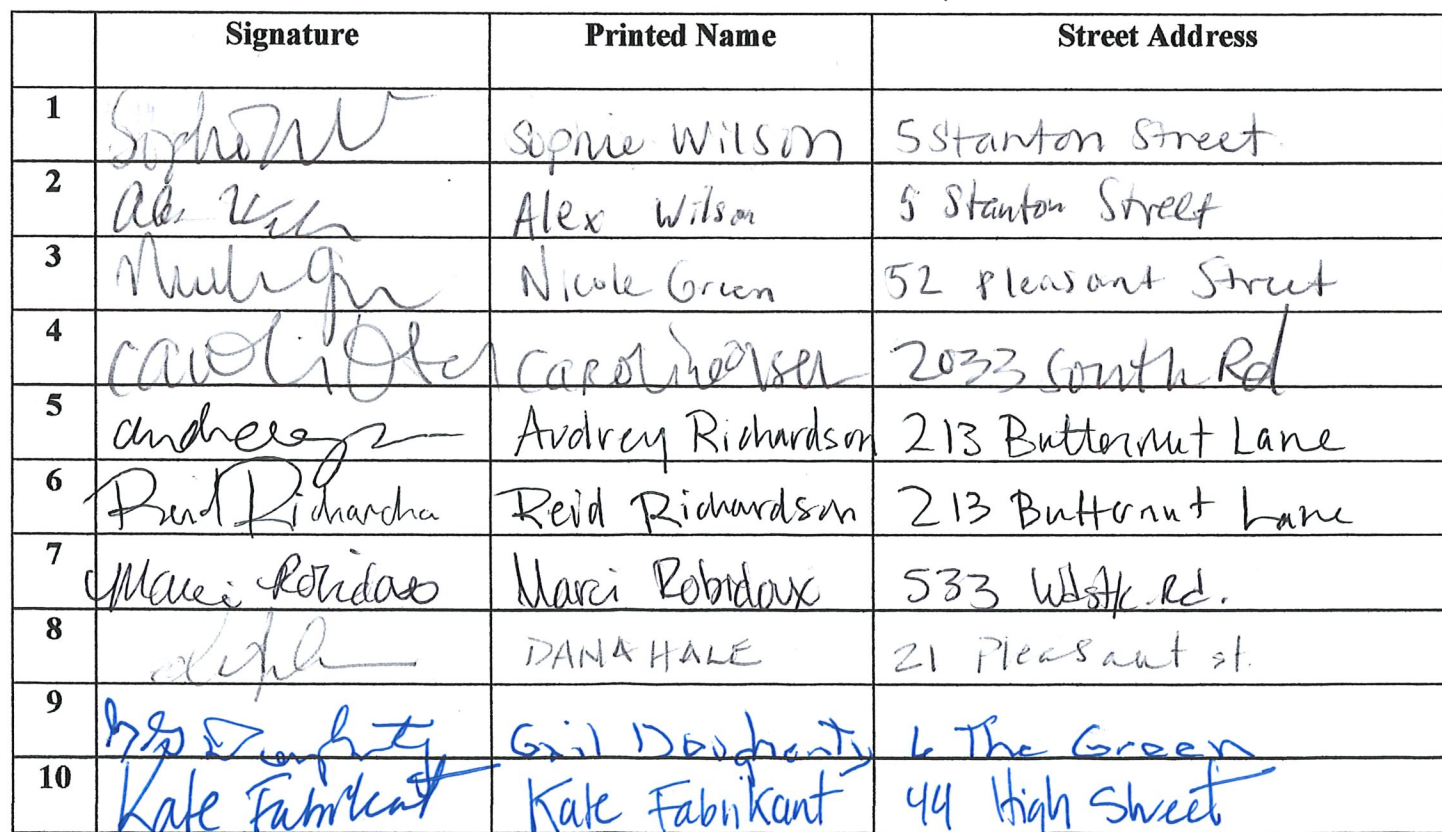 Signature Printed Name Street Address
1 Sophie Wilson 5 Stanton Street
2 Alex Wilson 5 Stanton Street
3 Nicole Green 52 Pleasant Street
4 Caroline Olsen 2033 South Rd
5 Audrey Richardson 213 Butternut Lane
6 Reid Richardson Reid Richardson 213 Butternut Lane
7 Marci Robidoux Marci Robidoux 533 Wdstk Rd.
8 DANA HALE 21 Pleasant st.
9 Gail Dougherty 6 The Green
10 Kate Fabrikant Kate Fabrikant 44 High Street